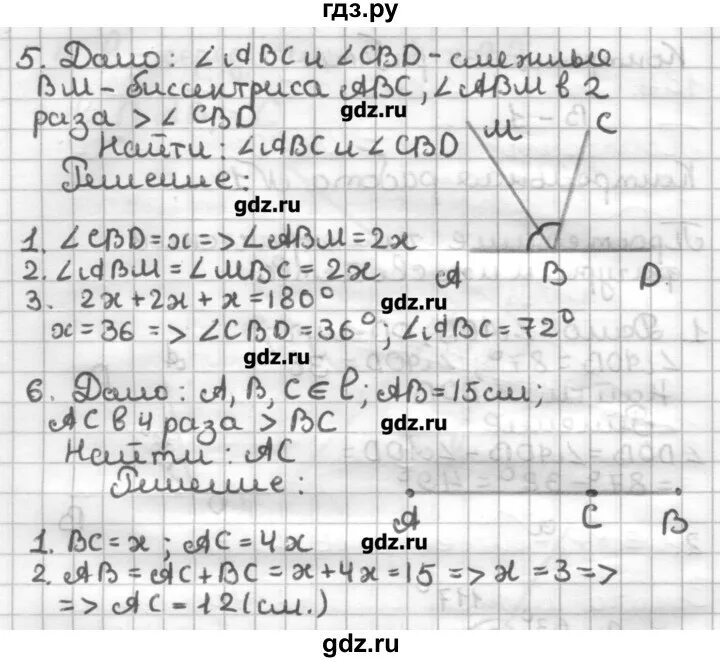 гдз.ру
5. Дано: ∠ABC и ∠CBD - смежные
BM - биссектриса ABC, ∠ABM в 2
раза > ∠CBD
gdz.ru
M C
Найти: ∠ABC и ∠CBD
Решение:
gdz.ru
1. ∠CBD = x => ∠ABM = 2x
2. ∠ABM = ∠MBC = 2x
A B D
3. 2x + 2x + x = 180°
gdz.ru
x = 36 => ∠CBD = 36°; ∠ABC = 72°
gdz.ru
6. Дано: A, B, C ∈ l; AB = 15 см;
AC в 4 раза > BC
gdz.ru
Найти: AC
Решение:
A C B
1. BC = x; AC = 4x
gdz.ru
2. AB = AC + BC = x + 4x = 15 => x = 3 =>
=> AC = 12 (см.)
gdz.ru